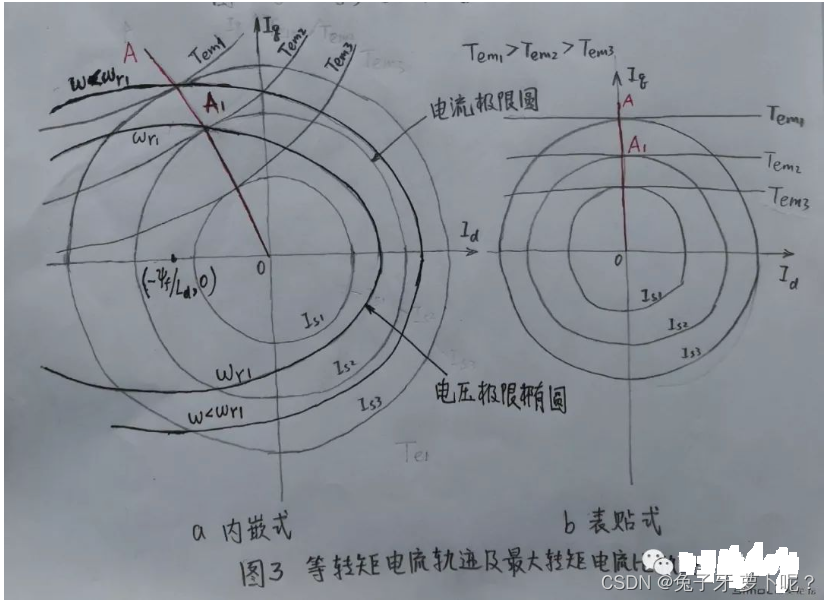 A
Tem1
Iq
Tem2
Tem3
ω<ωr1
A1
ωr1
电流极限圆
Id
0
(-Ψf/Ld,0)
Is1
ωr1
Is2
Is3
ω<ωr1
电压极限椭圆
a 内嵌式
Tem1>Tem2>Tem3
Iq
A
Tem1
A1
Tem2
Tem3
0
Id
Is1
Is2
Is3
b 表贴式
图3 等转矩电流轨迹及最大转矩电流比
CSDN @兔子牙萝卜呢？